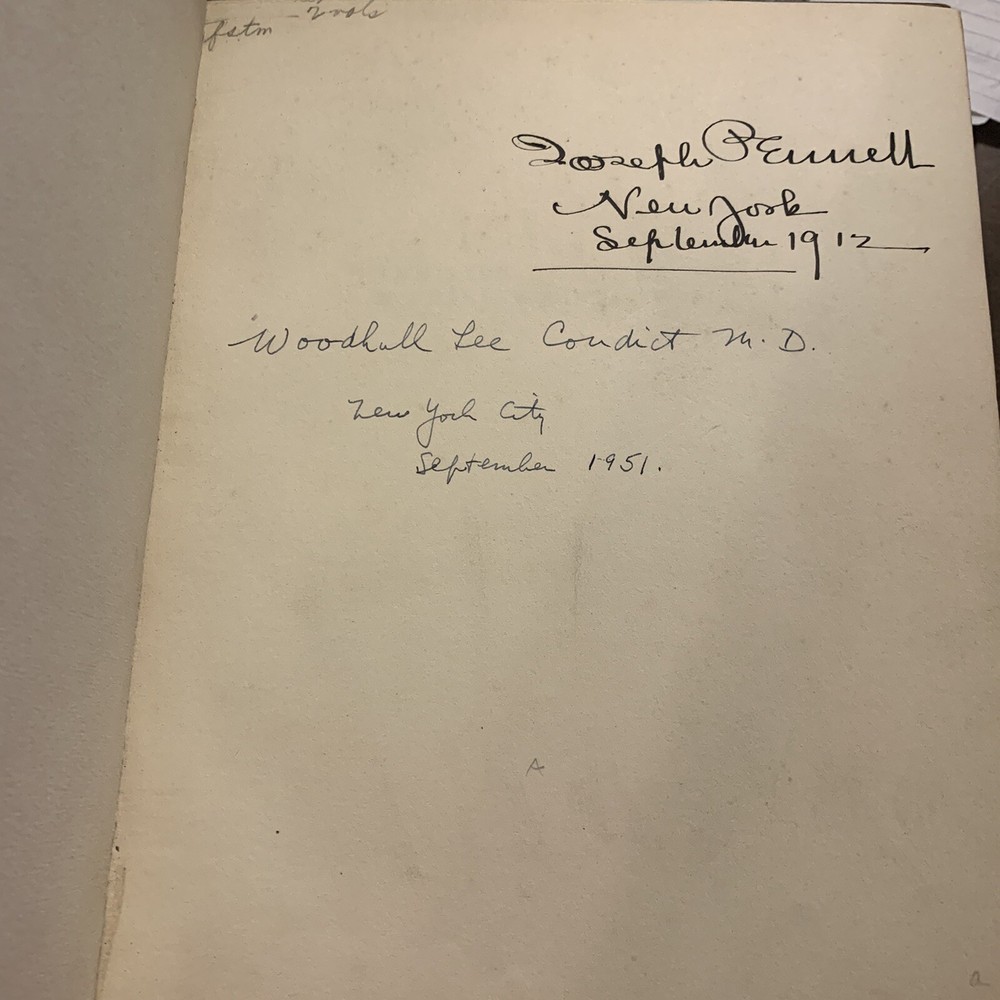 2 vols
Joseph Pennell
New York
September 1912
Woodhull Lee Condict M.D.
New York City
September 1951.
A
a